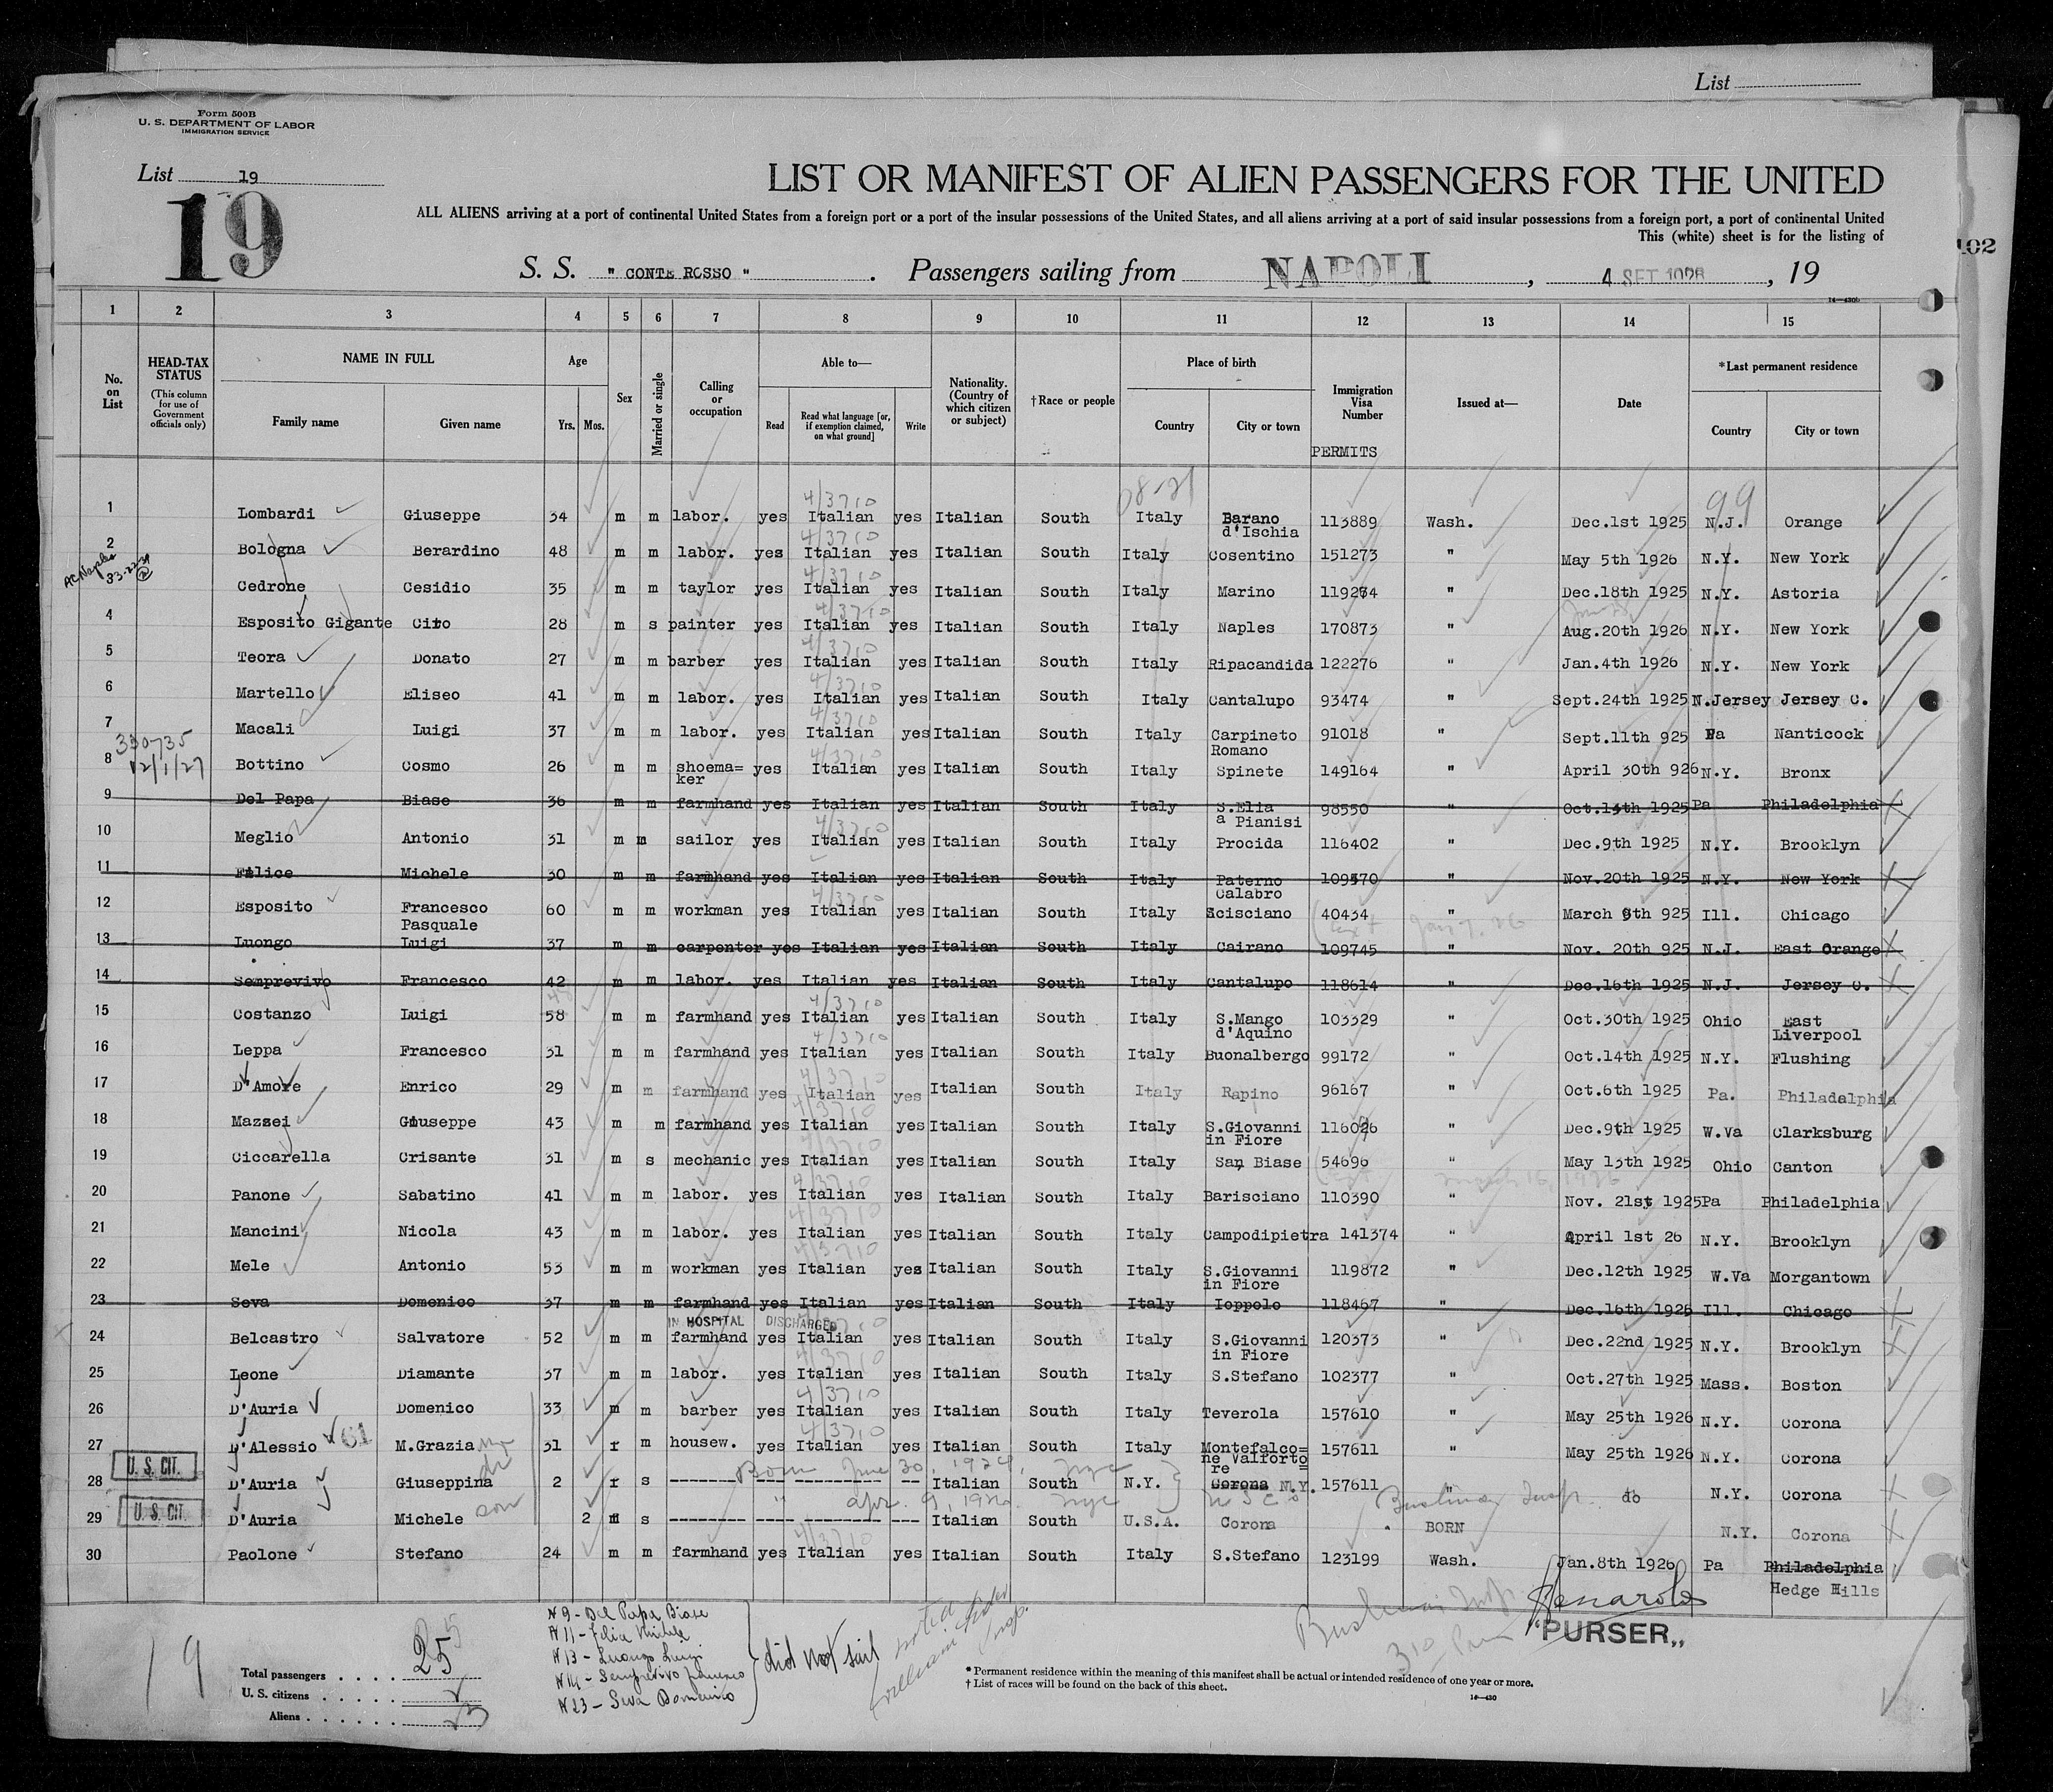 List
Form 500B
U. S. DEPARTMENT OF LABOR
IMMIGRATION SERVICE
List 19
19
LIST OR MANIFEST OF ALIEN PASSENGERS FOR THE UNITED
ALL ALIENS arriving at a port of continental United States from a foreign port or a port of the insular possessions of the United States, and all aliens arriving at a port of said insular possessions from a foreign port, a port of continental United
This (white) sheet is for the listing of
102
S. S. " CONTE ROSSO " . Passengers sailing from NAPOLI , 4 SET 1926 , 19
1 2 3 4 5 6 7 8 9 10 11 12 13 14 15
No. on List HEAD-TAX STATUS (This column for use of Government officials only) NAME IN FULL Family name Given name Age Yrs. Mos. Sex Married or single Calling or occupation Able to— Read Read what language [or, if exemption claimed, on what ground] Write Nationality. (Country of which citizen or subject) †Race or people Place of birth Country City or town Immigration Visa Number PERMITS Issued at— Date *Last permanent residence Country City or town
1 Lombardi Giuseppe 34 m m labor. yes Italian yes Italian South Italy Barano d'Ischia 113889 Wash. Dec.1st 1925 N.J. Orange
2 Bologna Berardino 48 m m labor. yes Italian yes Italian South Italy Cosentino 151273 " May 5th 1926 N.Y. New York
Cedrone Cesidio 35 m m taylor yes Italian yes Italian South Italy Marino 119274 " Dec.18th 1925 N.Y. Astoria
4 Esposito Gigante Ciro 28 m s painter yes Italian yes Italian South Italy Naples 170873 " Aug.20th 1926 N.Y. New York
5 Teora Donato 27 m m barber yes Italian yes Italian South Italy Ripacandida 122276 " Jan.4th 1926 N.Y. New York
6 Martello Eliseo 41 m m labor. yes Italian yes Italian South Italy Cantalupo 93474 " Sept.24th 1925 N.Jersey Jersey C.
7 Macali Luigi 37 m m labor. yes Italian yes Italian South Italy Carpineto Romano 91018 " Sept.11th 925 Pa Nanticock
330735
12/1/27
8 Bottino Cosmo 26 m m shoema=ker yes Italian yes Italian South Italy Spinete 149164 " April 30th 926 N.Y. Bronx
9 Del Papa Biase 36 m m farmhand yes Italian yes Italian South Italy S.Elia a Pianisi 98550 " Oct.14th 1925 Pa Philadelphia
10 Meglio Antonio 31 m m sailor yes Italian yes Italian South Italy Procida 116402 " Dec.9th 1925 N.Y. Brooklyn
11 Felice Michele 30 m m farmhand yes Italian yes Italian South Italy Paterno Calabro 109570 " Nov.20th 1925 N.Y. New York
12 Esposito Francesco Pasquale 60 m m workman yes Italian yes Italian South Italy Scisciano 40434 " March 9th 925 Ill. Chicago
13 Luongo Luigi 37 m m carpenter yes Italian yes Italian South Italy Cairano 109745 " Nov. 20th 925 N.J. East Orange
14 Semprevivo Francesco 42 m m labor. yes Italian yes Italian South Italy Cantalupo 118614 " Dec.16th 1925 N.J. Jersey C.
15 Costanzo Luigi 58 m m farmhand yes Italian yes Italian South Italy S.Mango d'Aquino 103329 " Oct.30th 1925 Ohio East Liverpool
16 Leppa Francesco 31 m m farmhand yes Italian yes Italian South Italy Buonalbergo 99172 " Oct.14th 1925 N.Y. Flushing
17 D'Amore Enrico 29 m m farmhand yes Italian yes Italian South Italy Rapino 96167 " Oct.6th 1925 Pa. Philadalphia
18 Mazzei Giuseppe 43 m m farmhand yes Italian yes Italian South Italy S.Giovanni in Fiore 116026 " Dec.9th 1925 W.Va Clarksburg
19 Ciccarella Crisante 31 m s mechanic yes Italian yes Italian South Italy San Biase 54696 " May 13th 1925 Ohio Canton
20 Panone Sabatino 41 m m labor. yes Italian yes Italian South Italy Barisciano 110390 " Nov. 21st 1925 Pa Philadelphia
21 Mancini Nicola 43 m m labor. yes Italian yes Italian South Italy Campodipietra 141374 " April 1st 26 N.Y. Brooklyn
22 Mele Antonio 53 m m workman yes Italian yes Italian South Italy S.Giovanni in Fiore 119872 " Dec.12th 1925 W.Va Morgantown
23 Seva Domenico 37 m m farmhand yes Italian yes Italian South Italy Ioppolo 118467 " Dec.16th 1926 Ill. Chicago
IN HOSPITAL DISCHARGED
24 Belcastro Salvatore 52 m m farmhand yes Italian yes Italian South Italy S.Giovanni in Fiore 120373 " Dec.22nd 1925 N.Y. Brooklyn
25 Leone Diamante 37 m m labor. yes Italian yes Italian South Italy S.Stefano 102377 " Oct.27th 1925 Mass. Boston
26 D'Auria Domenico 33 m m barber yes Italian yes Italian South Italy Teverola 157610 " May 25th 1926 N.Y. Corona
27 D'Alessio M.Grazia 31 f m housew. yes Italian yes Italian South Italy Montefalco=ne Valforto=re 157611 " May 25th 1926 N.Y. Corona
Born June 30, 1924, nyc
U. S. CIT.
28 D'Auria Giuseppina 2 f s Italian South N.Y. Corona N.Y. 157611 " do N.Y. Corona
U. S. CIT.
29 D'Auria Michele son 2 m s Italian South U.S.A. Corona BORN N.Y. Corona
30 Paolone Stefano 24 m m farmhand yes Italian yes Italian South Italy S.Stefano 123199 Wash. Jan.8th 1926 Pa Philadelphia
Hedge Hills
"PURSER„
19
N 9 - Del Papa Biase
N 11 - Felia Michele
N 13 - Luongo Luigi
N 14 - Semprevivo Francesco
N 23 - Seva Domenico
did not sail
noted
Total passengers . . . . 25
U. S. citizens . . . . . 2
Aliens . . . . . . 23
* Permanent residence within the meaning of this manifest shall be actual or intended residence of one year or more.
† List of races will be found on the back of this sheet.